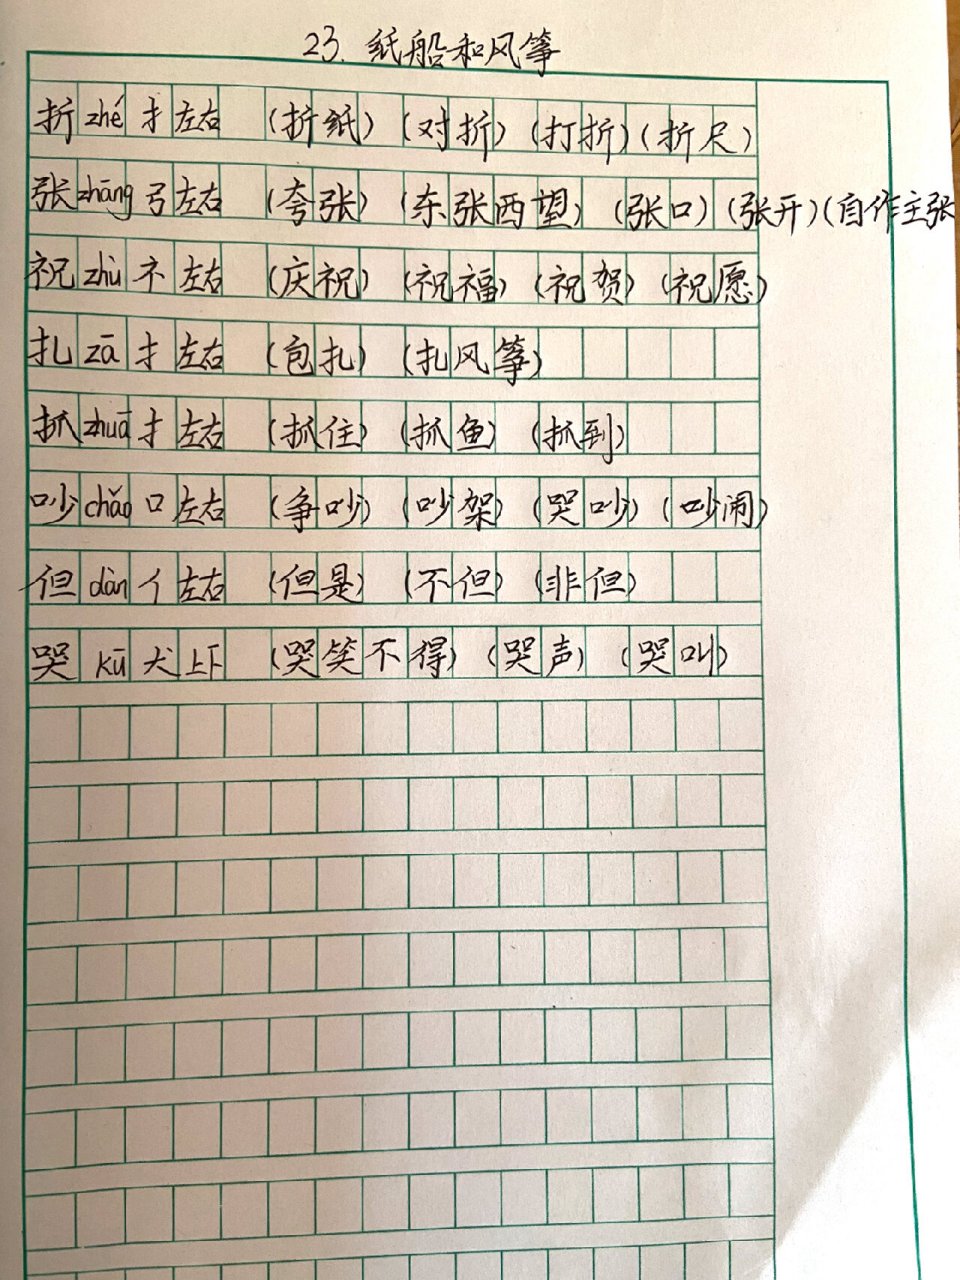 23. 纸船和风筝
折 zhé 扌 左右 (折纸) (对折) (打折) (折尺)
张 zhāng 弓 左右 (夸张) (东张西望) (张口) (张开) (自作主张
祝 zhù 礻 左右 (庆祝) (祝福) (祝贺) (祝愿)
扎 zā 扌 左右 (包扎) (扎风筝)
抓 zhuā 扌 左右 (抓住) (抓鱼) (抓到)
吵 chǎo 口 左右 (争吵) (吵架) (哭吵) (吵闹)
但 dàn 亻 左右 (但是) (不但) (非但)
哭 kū 犬 上下 (哭笑不得) (哭声) (哭叫)